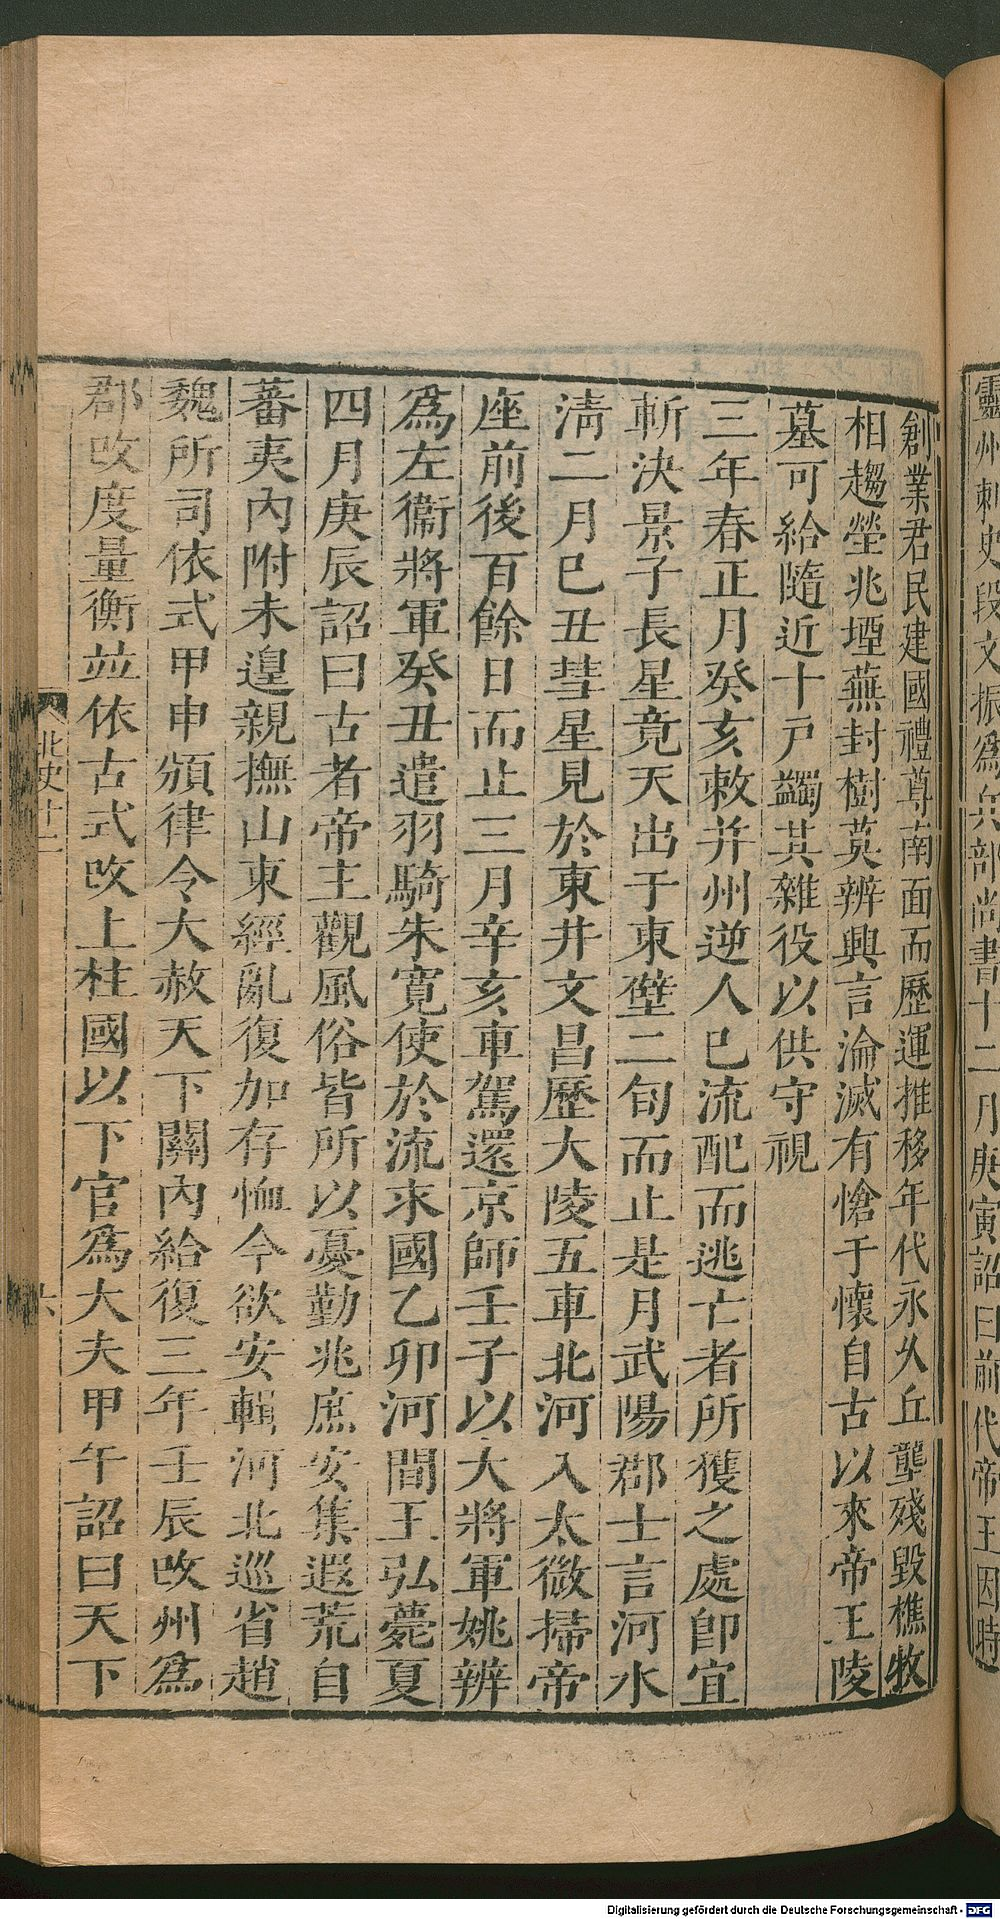 靈州刺史段文振爲兵部尚書十二月庚寅詔曰前代帝王因時
創業君民建國禮尊南面而歷運推移年代永久丘壟殘毀樵牧
相趨塋兆堙蕪封樹莫辨興言淪滅有愴于懷自古以來帝王陵
墓可給隨近十戸蠲其雜役以供守視
三年春正月癸亥敕并州逆人已流配而逃亡者所獲之處卽宜
斬決景子長星竟天出于東壁二旬而止是月武陽郡士言河水
清二月巳丑彗星見於東井文昌歷大陵五車北河入太微掃帝
座前後百餘日而止三月辛亥車駕還京師壬子以大將軍姚辨
爲左衞將軍癸丑遣羽騎朱寬使於流求國乙卯河間王弘薨夏
四月庚辰詔曰古者帝主觀風俗皆所以憂勤兆庶安集遐荒自
蕃夷內附未遑親撫山東經亂復加存恤今欲安輯河北巡省趙
魏所司依式甲申頒律令大赦天下關內給復三年壬辰改州爲
郡改度量衡並依古式改上柱國以下官爲大夫甲午詔曰天下
北史十二
六
Digitalisierung gefördert durch die Deutsche Forschungsgemeinschaft - DFG